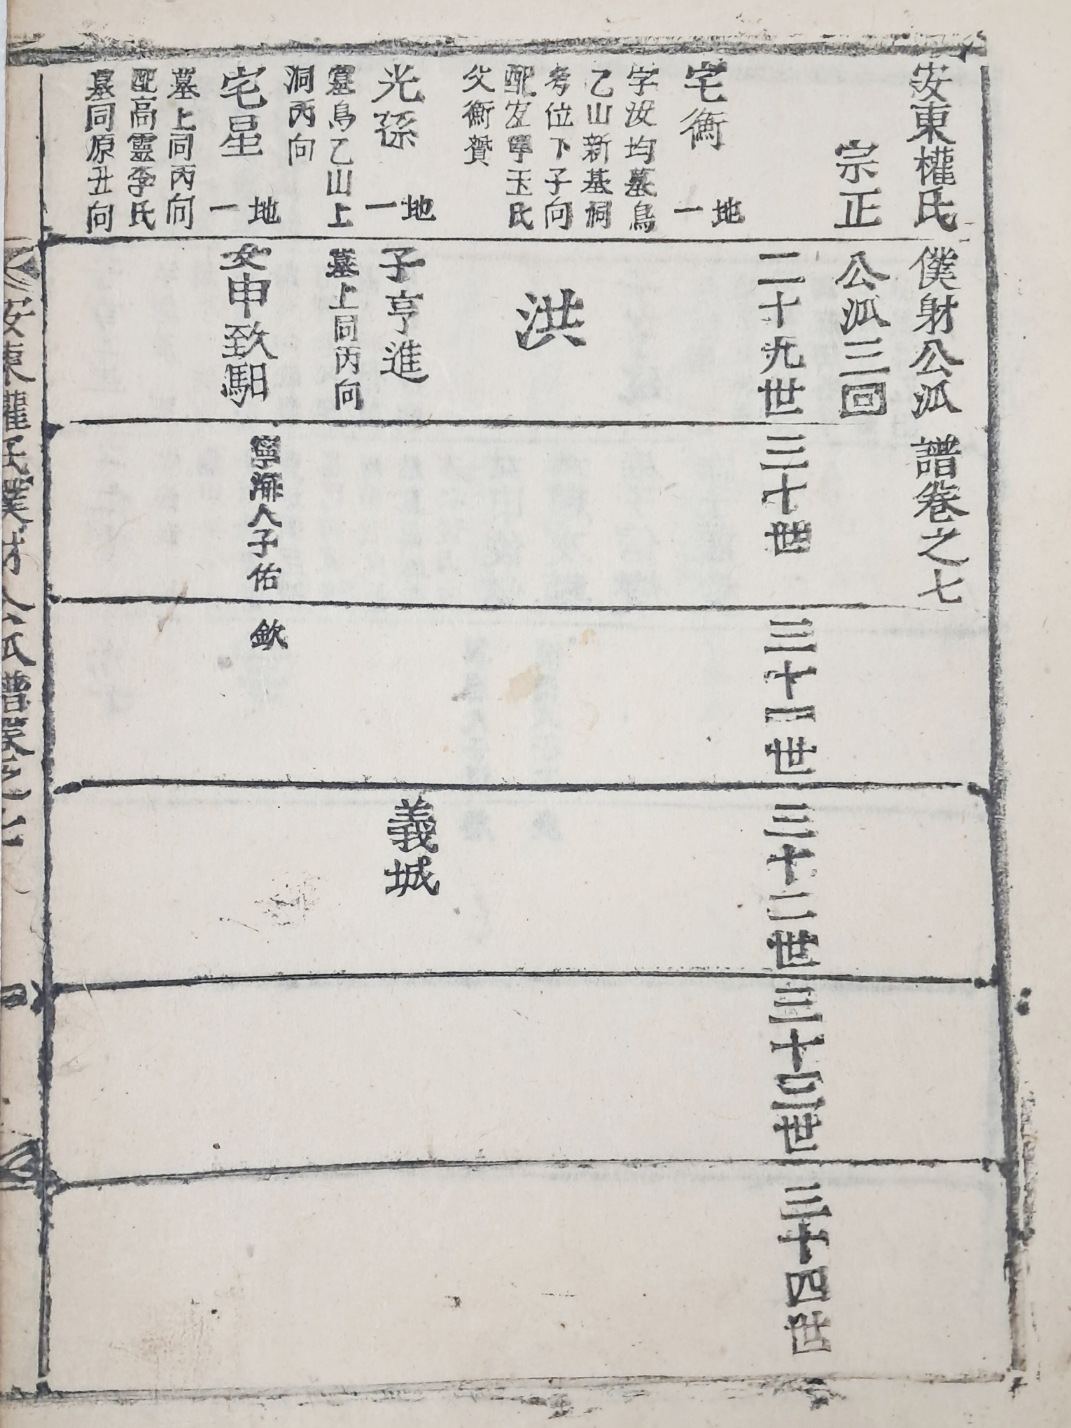 安東權氏僕射公派譜卷之七
宗正公派三回
二十九世
三十世
三十一世
三十二世
三十三世
三十四世
宅衡
地一
字汝均墓鳥
乙山新基祠
考位下子向
配宜寧玉氏
父衡贊
洪
光孫
地一
墓鳥乙山上
洞丙向
子亨進
墓上同丙向
義城
宅星
地一
墓上同丙向
配高靈李氏
墓同原丑向
女申致馹
寧海人子佑
欽
安東權氏僕射公派譜卷之七